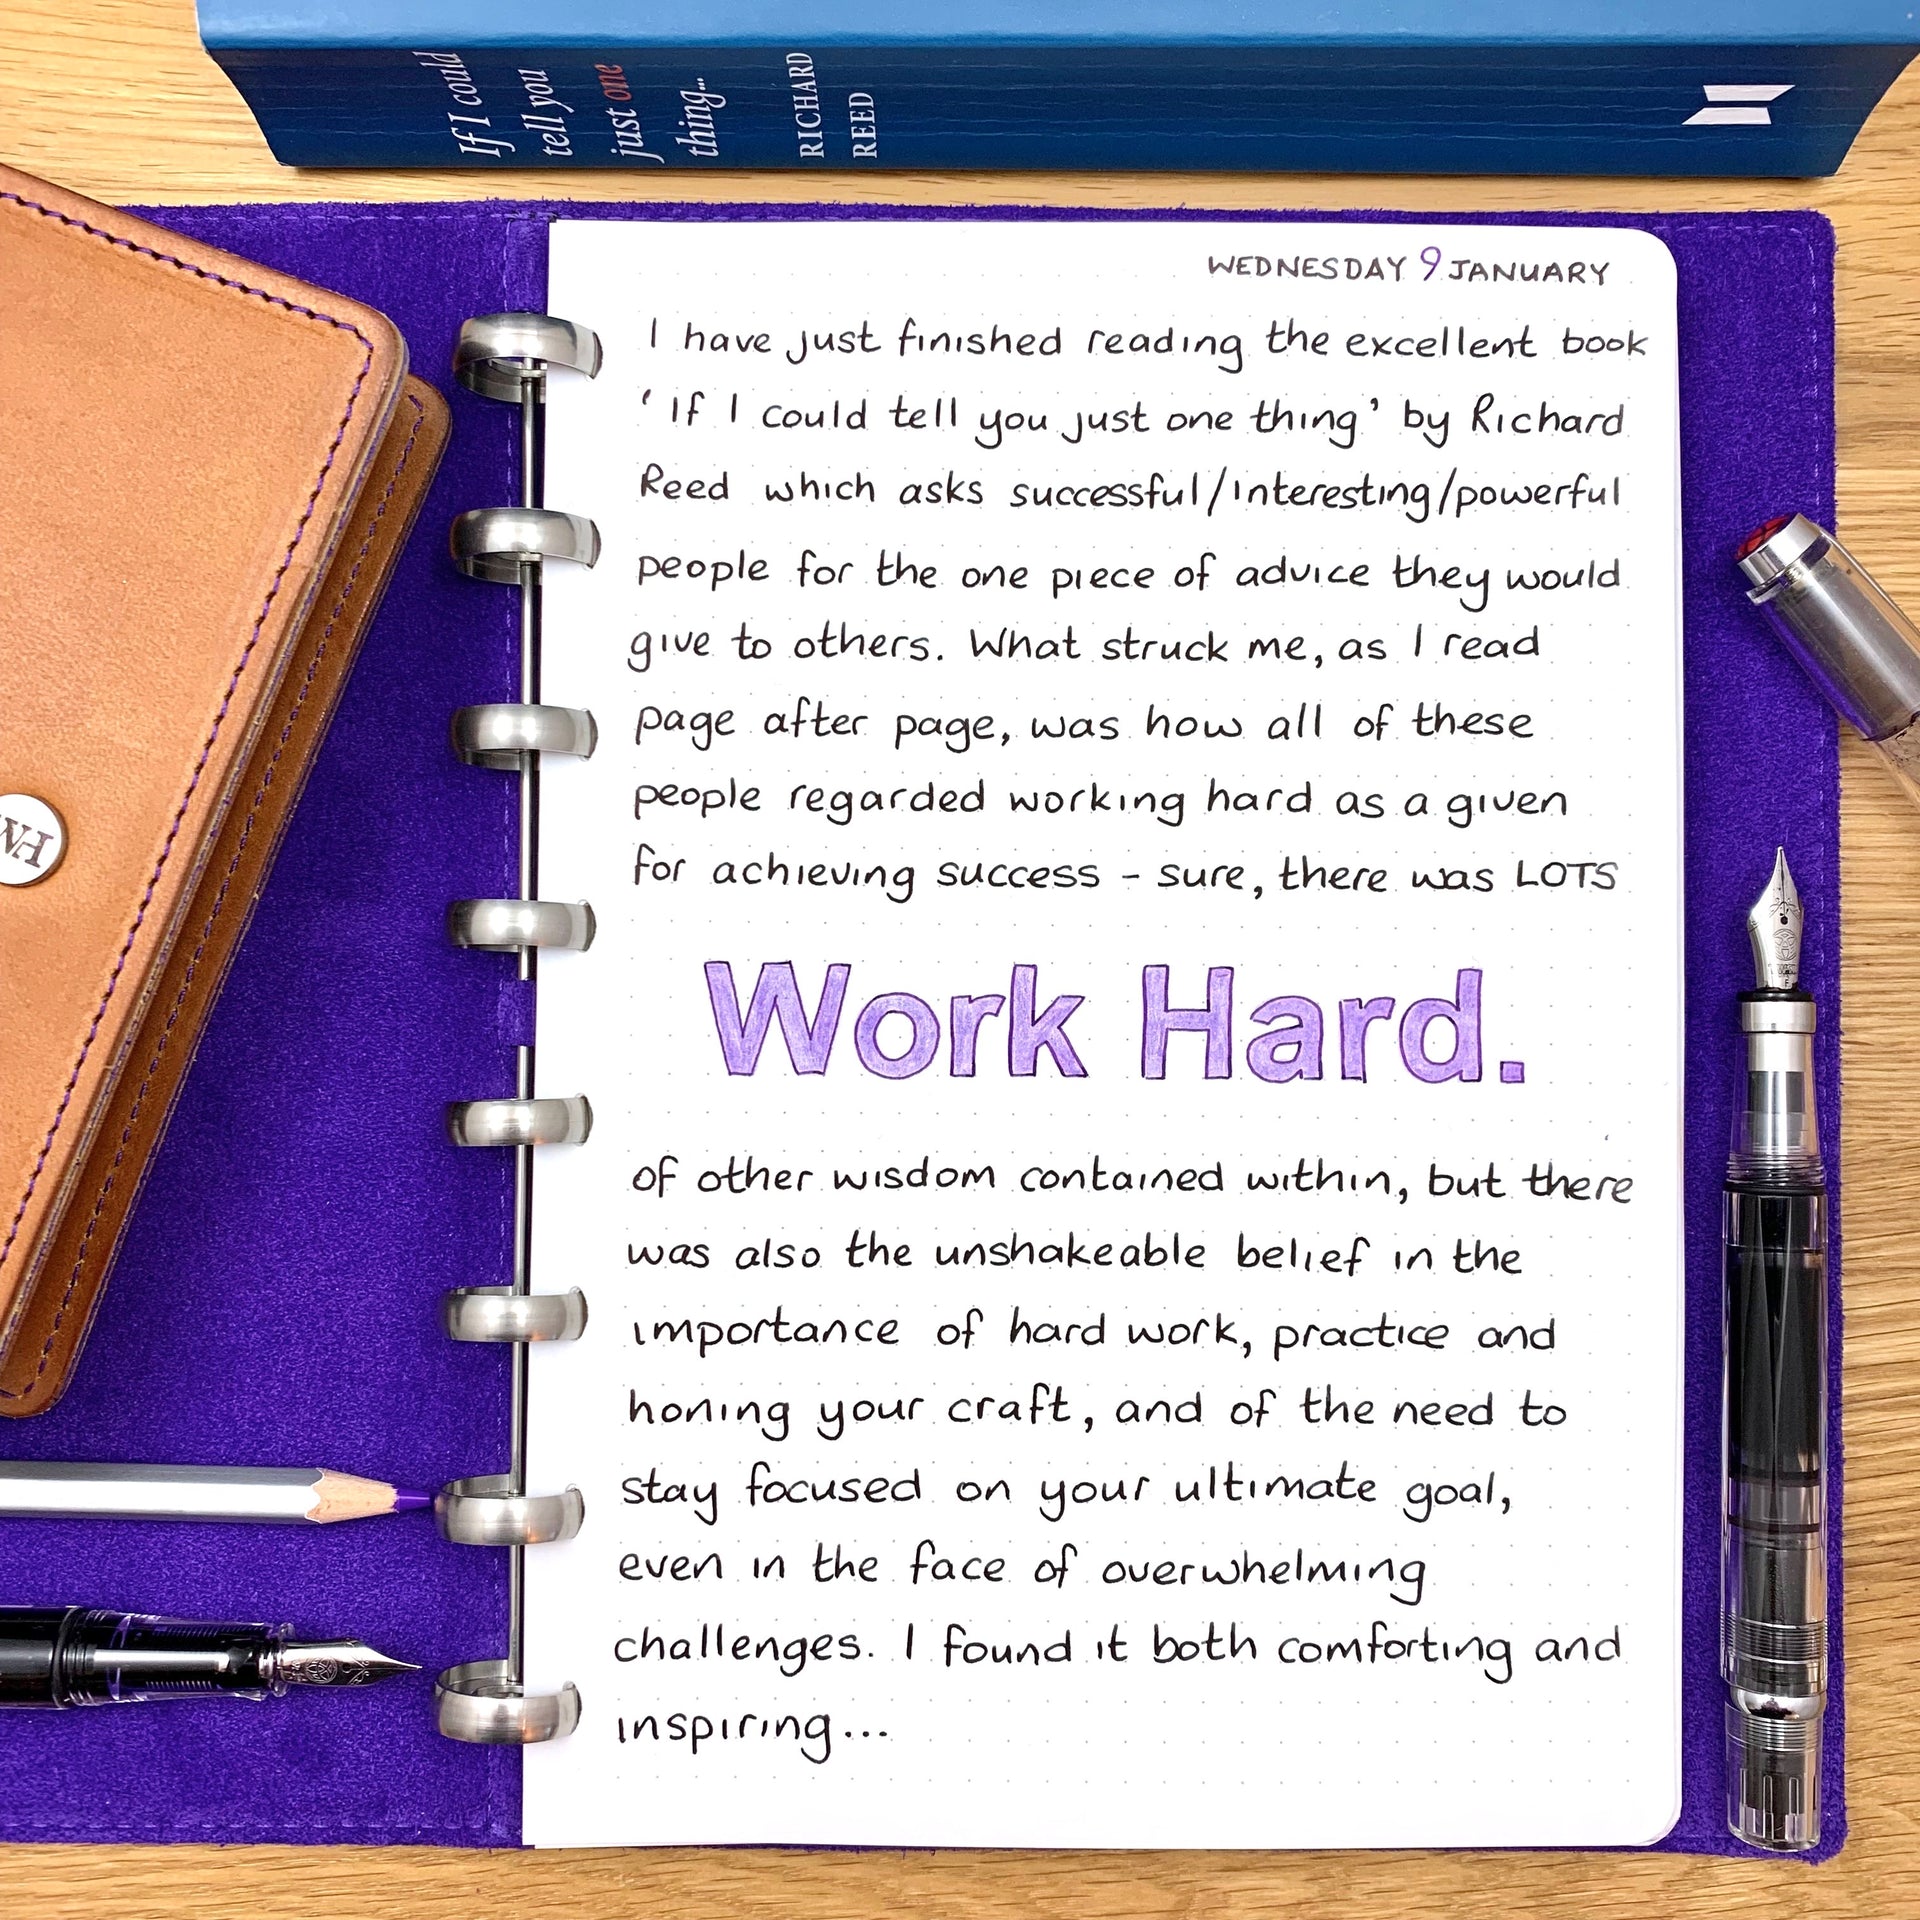 If I could
tell you
just one
thing...
RICHARD
REED
WEDNESDAY 9 JANUARY
I have just finished reading the excellent book
'If I could tell you just one thing' by Richard
Reed which asks successful/interesting/powerful
people for the one piece of advice they would
give to others. What struck me, as I read
page after page, was how all of these
people regarded working hard as a given
for achieving success - sure, there was LOTS
Work Hard.
of other wisdom contained within, but there
was also the unshakeable belief in the
importance of hard work, practice and
honing your craft, and of the need to
stay focused on your ultimate goal,
even in the face of overwhelming
challenges. I found it both comforting and
inspiring...